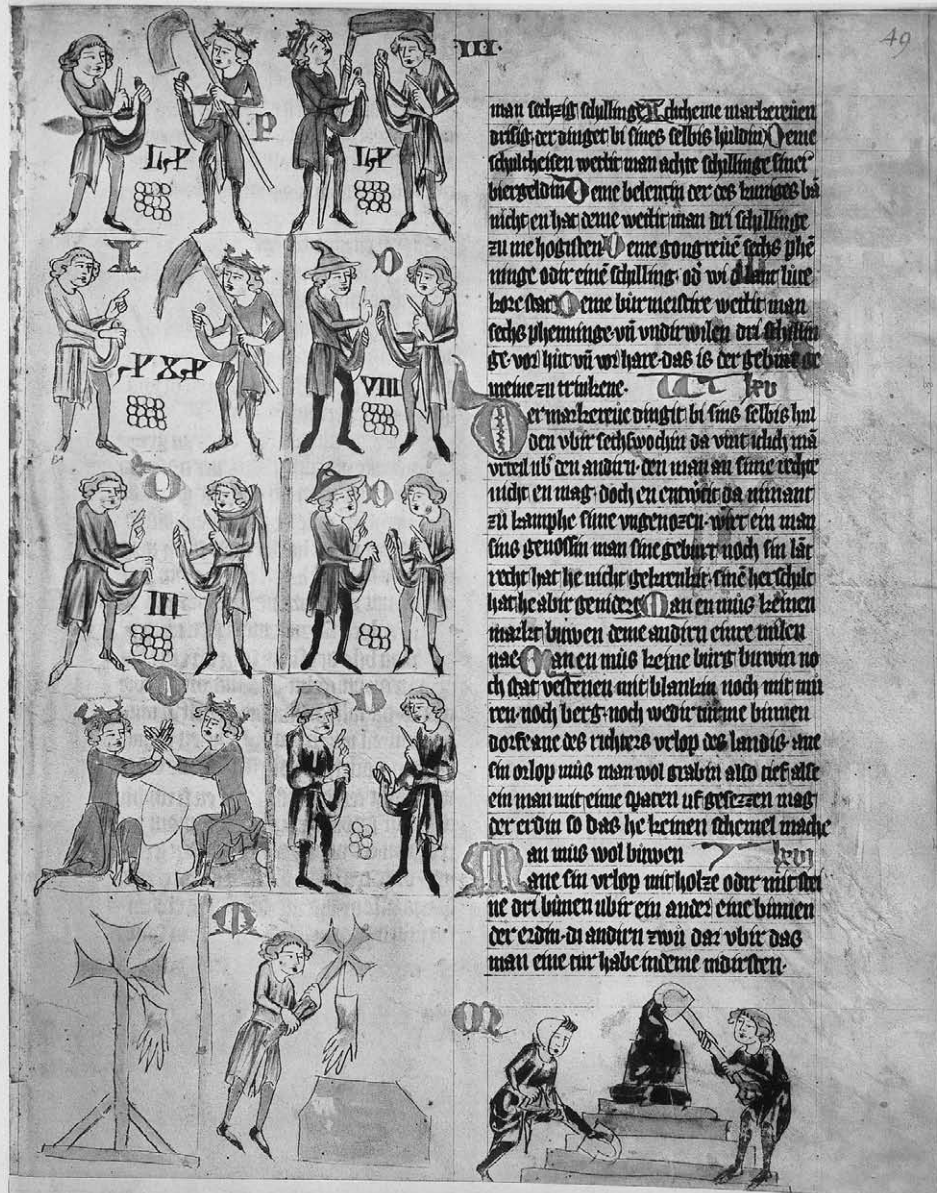 49
III
man sechzig schillinge Icheme markereuen
drisig der dinget bi sines selbis huldin Deme
schultheisen wettit man achte schillinge siner
biergeldin Deme belentin der des kuniges bā
nicht en hat deme wettit man dri schillinge
zu me hogisten Deme gougreuē sechs phē
ninge odir einē schilling od wi lantlute
kore stat Deme burmeistere wettit man
sechs phenninge vn̄ vndirwilen dri schillin
ge vor hut vn̄ vor hare das is der gebure ge
meine zu trinkene lxv
Der markereue dingit bi sins selbis hul
den vbir sechswochin da vint iclich mā
vrteil ub den andirn den man an sime rechte
nicht en mag doch en entwert da nimant
zu kamphe sime vngenozen wirt ein man
sins genossin man sine geburt noch sin lāt
recht hat he nicht gekrenkit sinē herschilt
hat he abir genidert Man en mus keinen
markt buwen deme andirn einre milen
nae Man en mus keine burg buwin no
ch stat vestenen mit blankin noch mit mu
ren noch berg noch wedir turme binnen
dorfe ane des richters vrlop des landis ane
sin orlop mus man wol grabin also tief alse
ein man mit eime spaten uf gesezzen mag
der erdin so das he keinen schemel mache
Man mus wol buwen lxvi
ane sin vrlop mit holze odir mit stei
ne dri bunen ubir ein ander eine binnen
der erdin di andirn zwu dar vbir das
man eine tur habe indeme nidirsten
P
I
D
VIII
D
III
D
D
D
M
M